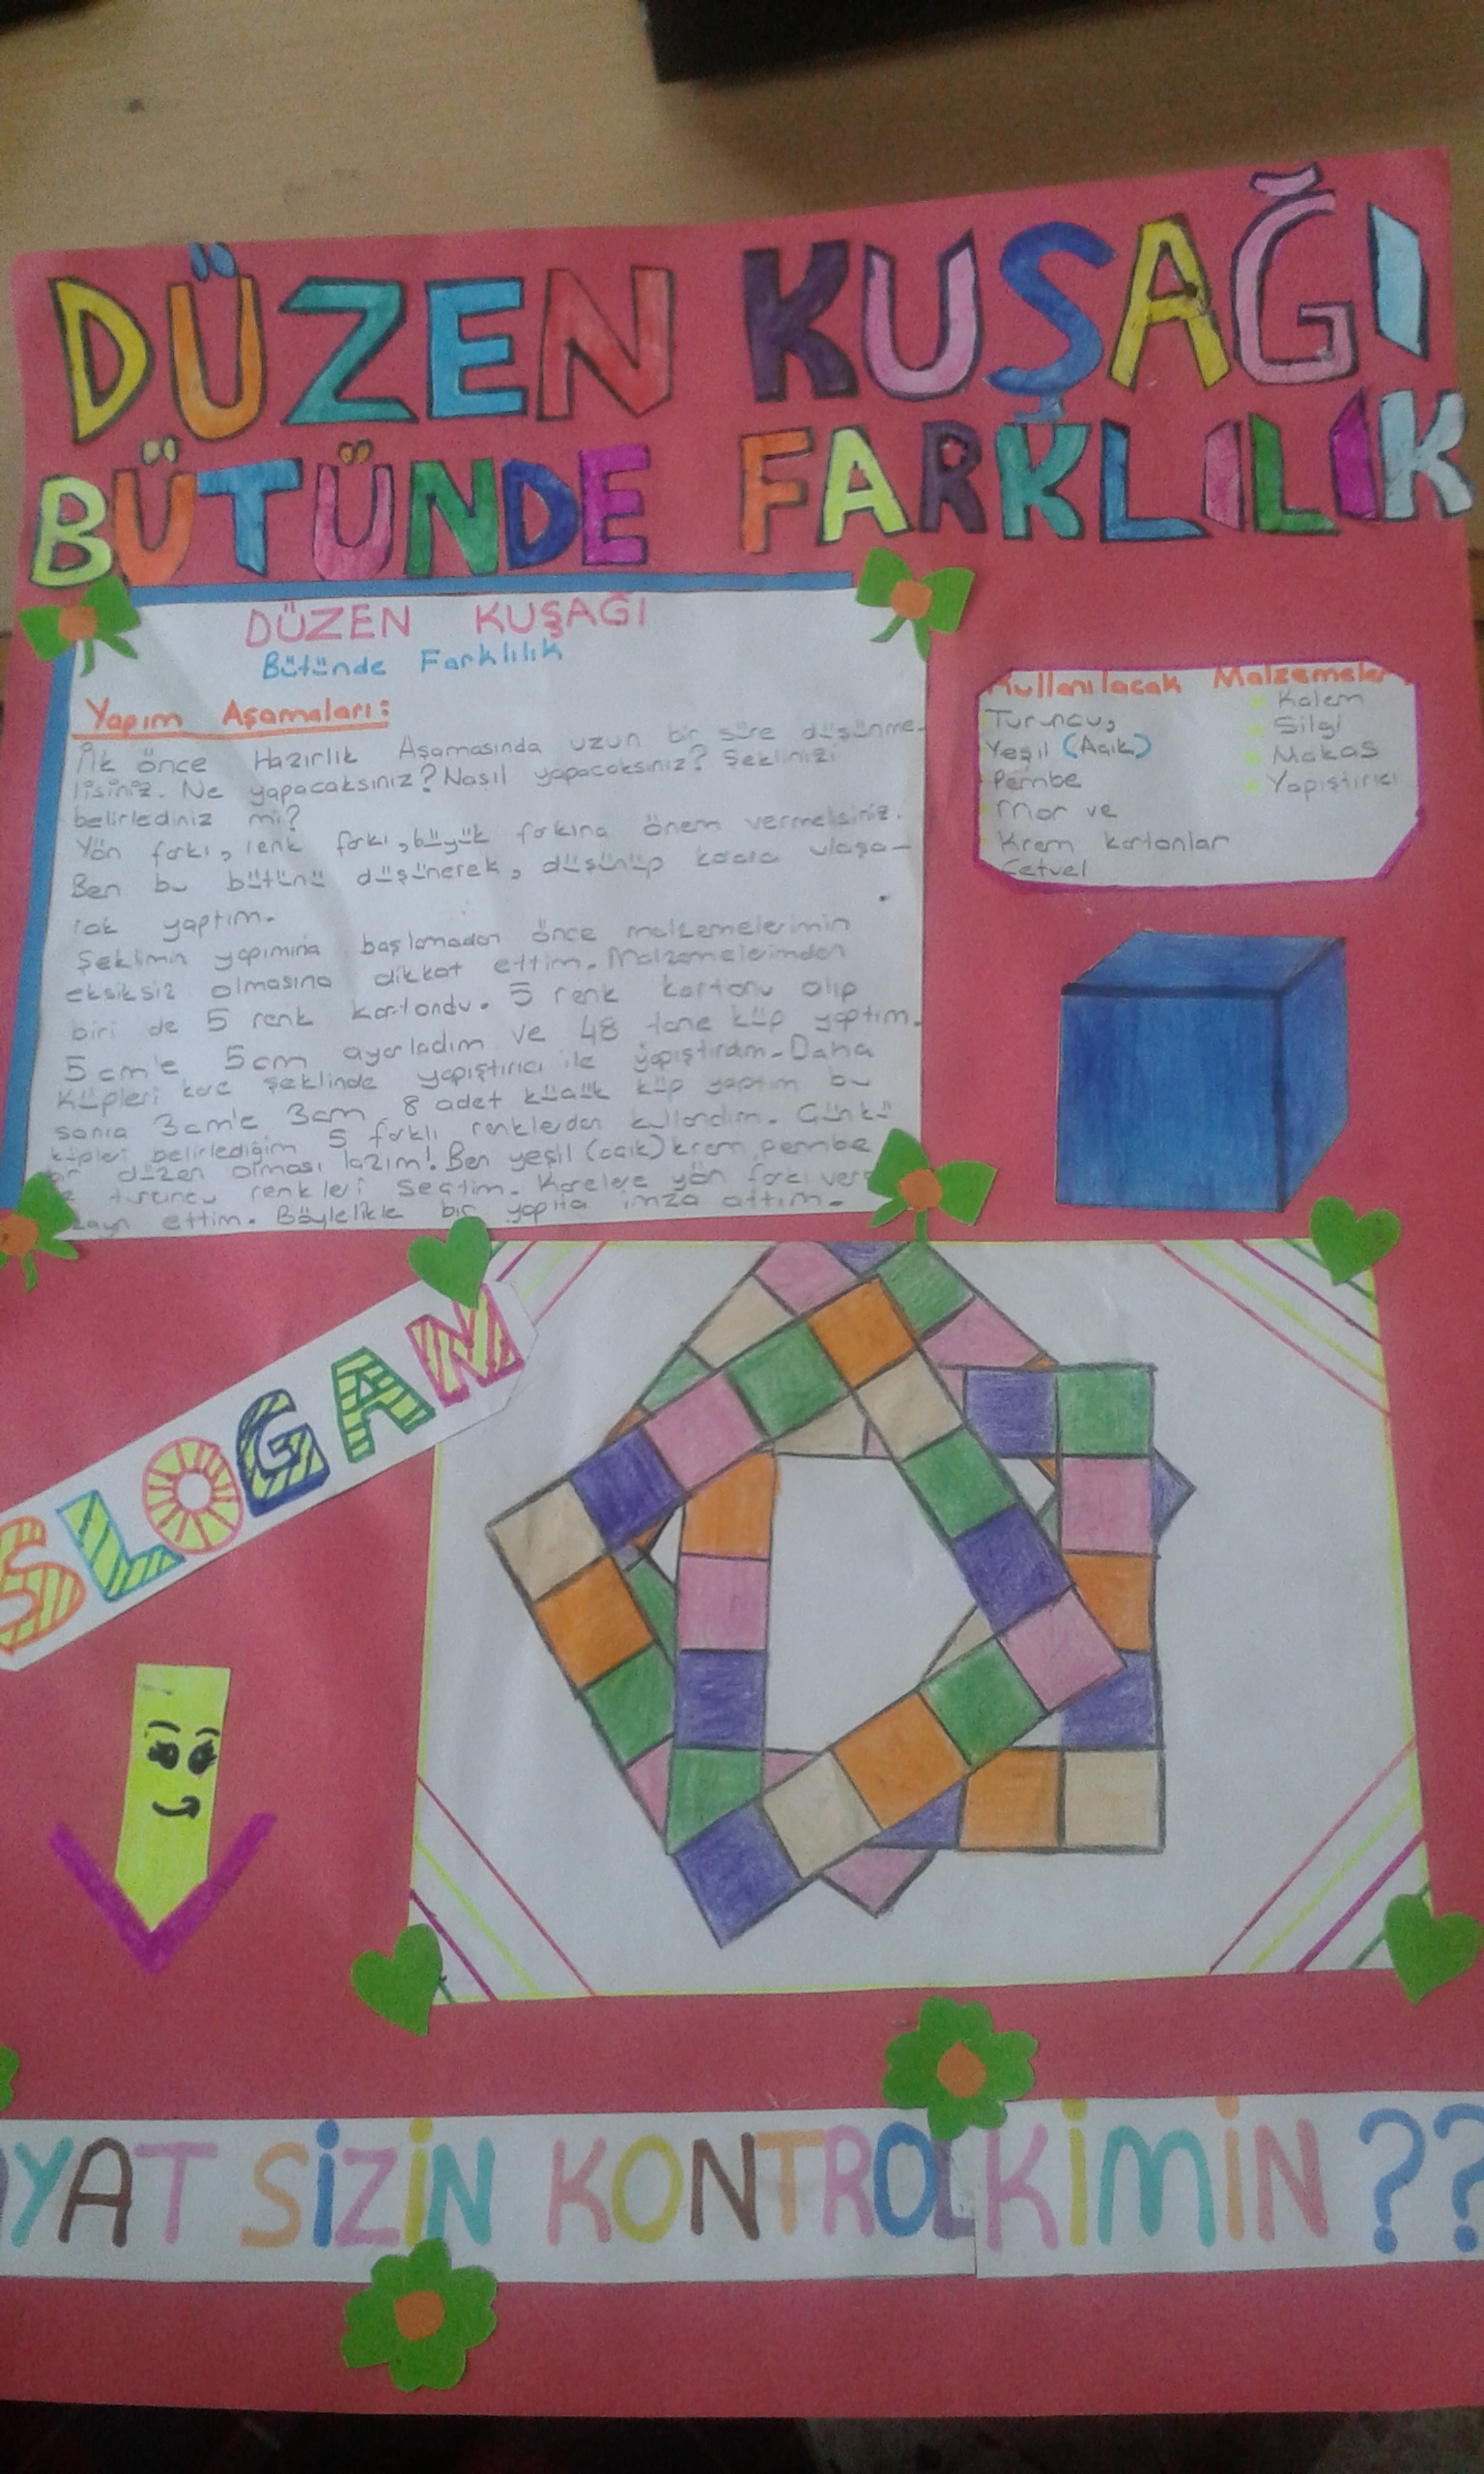 DÜZEN KUŞAĞI
BÜTÜNDE FARKLILIK
DÜZEN KUŞAĞI
Bütünde Farklılık
Yapım Aşamaları:
İlk önce Hazırlık Aşamasında uzun bir süre düşünme-
lisiniz. Ne yapacaksınız? Nasıl yapacaksınız? Şeklinizi
belirlediniz mi?
Yön farkı, renk farkı, büyük farkına önem vermelsiniz.
Ben bu bütünü düşünerek, düşünüp karara ulaşa-
rak yaptım.
Şeklimin yapımına başlamadan önce malzemelerimin
eksiksiz olmasına dikkat ettim. Malzemelerimden
biri de 5 renk kartondu. 5 renk kartonu alıp
5 cm'e 5cm ayarladım ve 48 tane küp yaptım.
Küpleri kare şeklinde yapıştırıcı ile yapıştırdım. Daha
sonra 3cm'e 3cm 8 adet küçük küp yaptım bu
küpleri belirlediğim 5 farklı renklerden kullandım. Çünkü
bir düzen olması lazım! Ben yeşil (açık) krem, pembe
turuncu renkleri seçtim. Karelere yön farkı
ettim. Böylelikle bir yapıta imza attım.
Kullanılacak Malzemeler
Turuncu,
Yeşil (Açık)
Pembe
Mor ve
Krem kartonlar
Cetvel
Kalem
Silgi
Makas
Yapıştırıcı
SLOGAN
YAT SİZİN KONTROL KİMİN ??